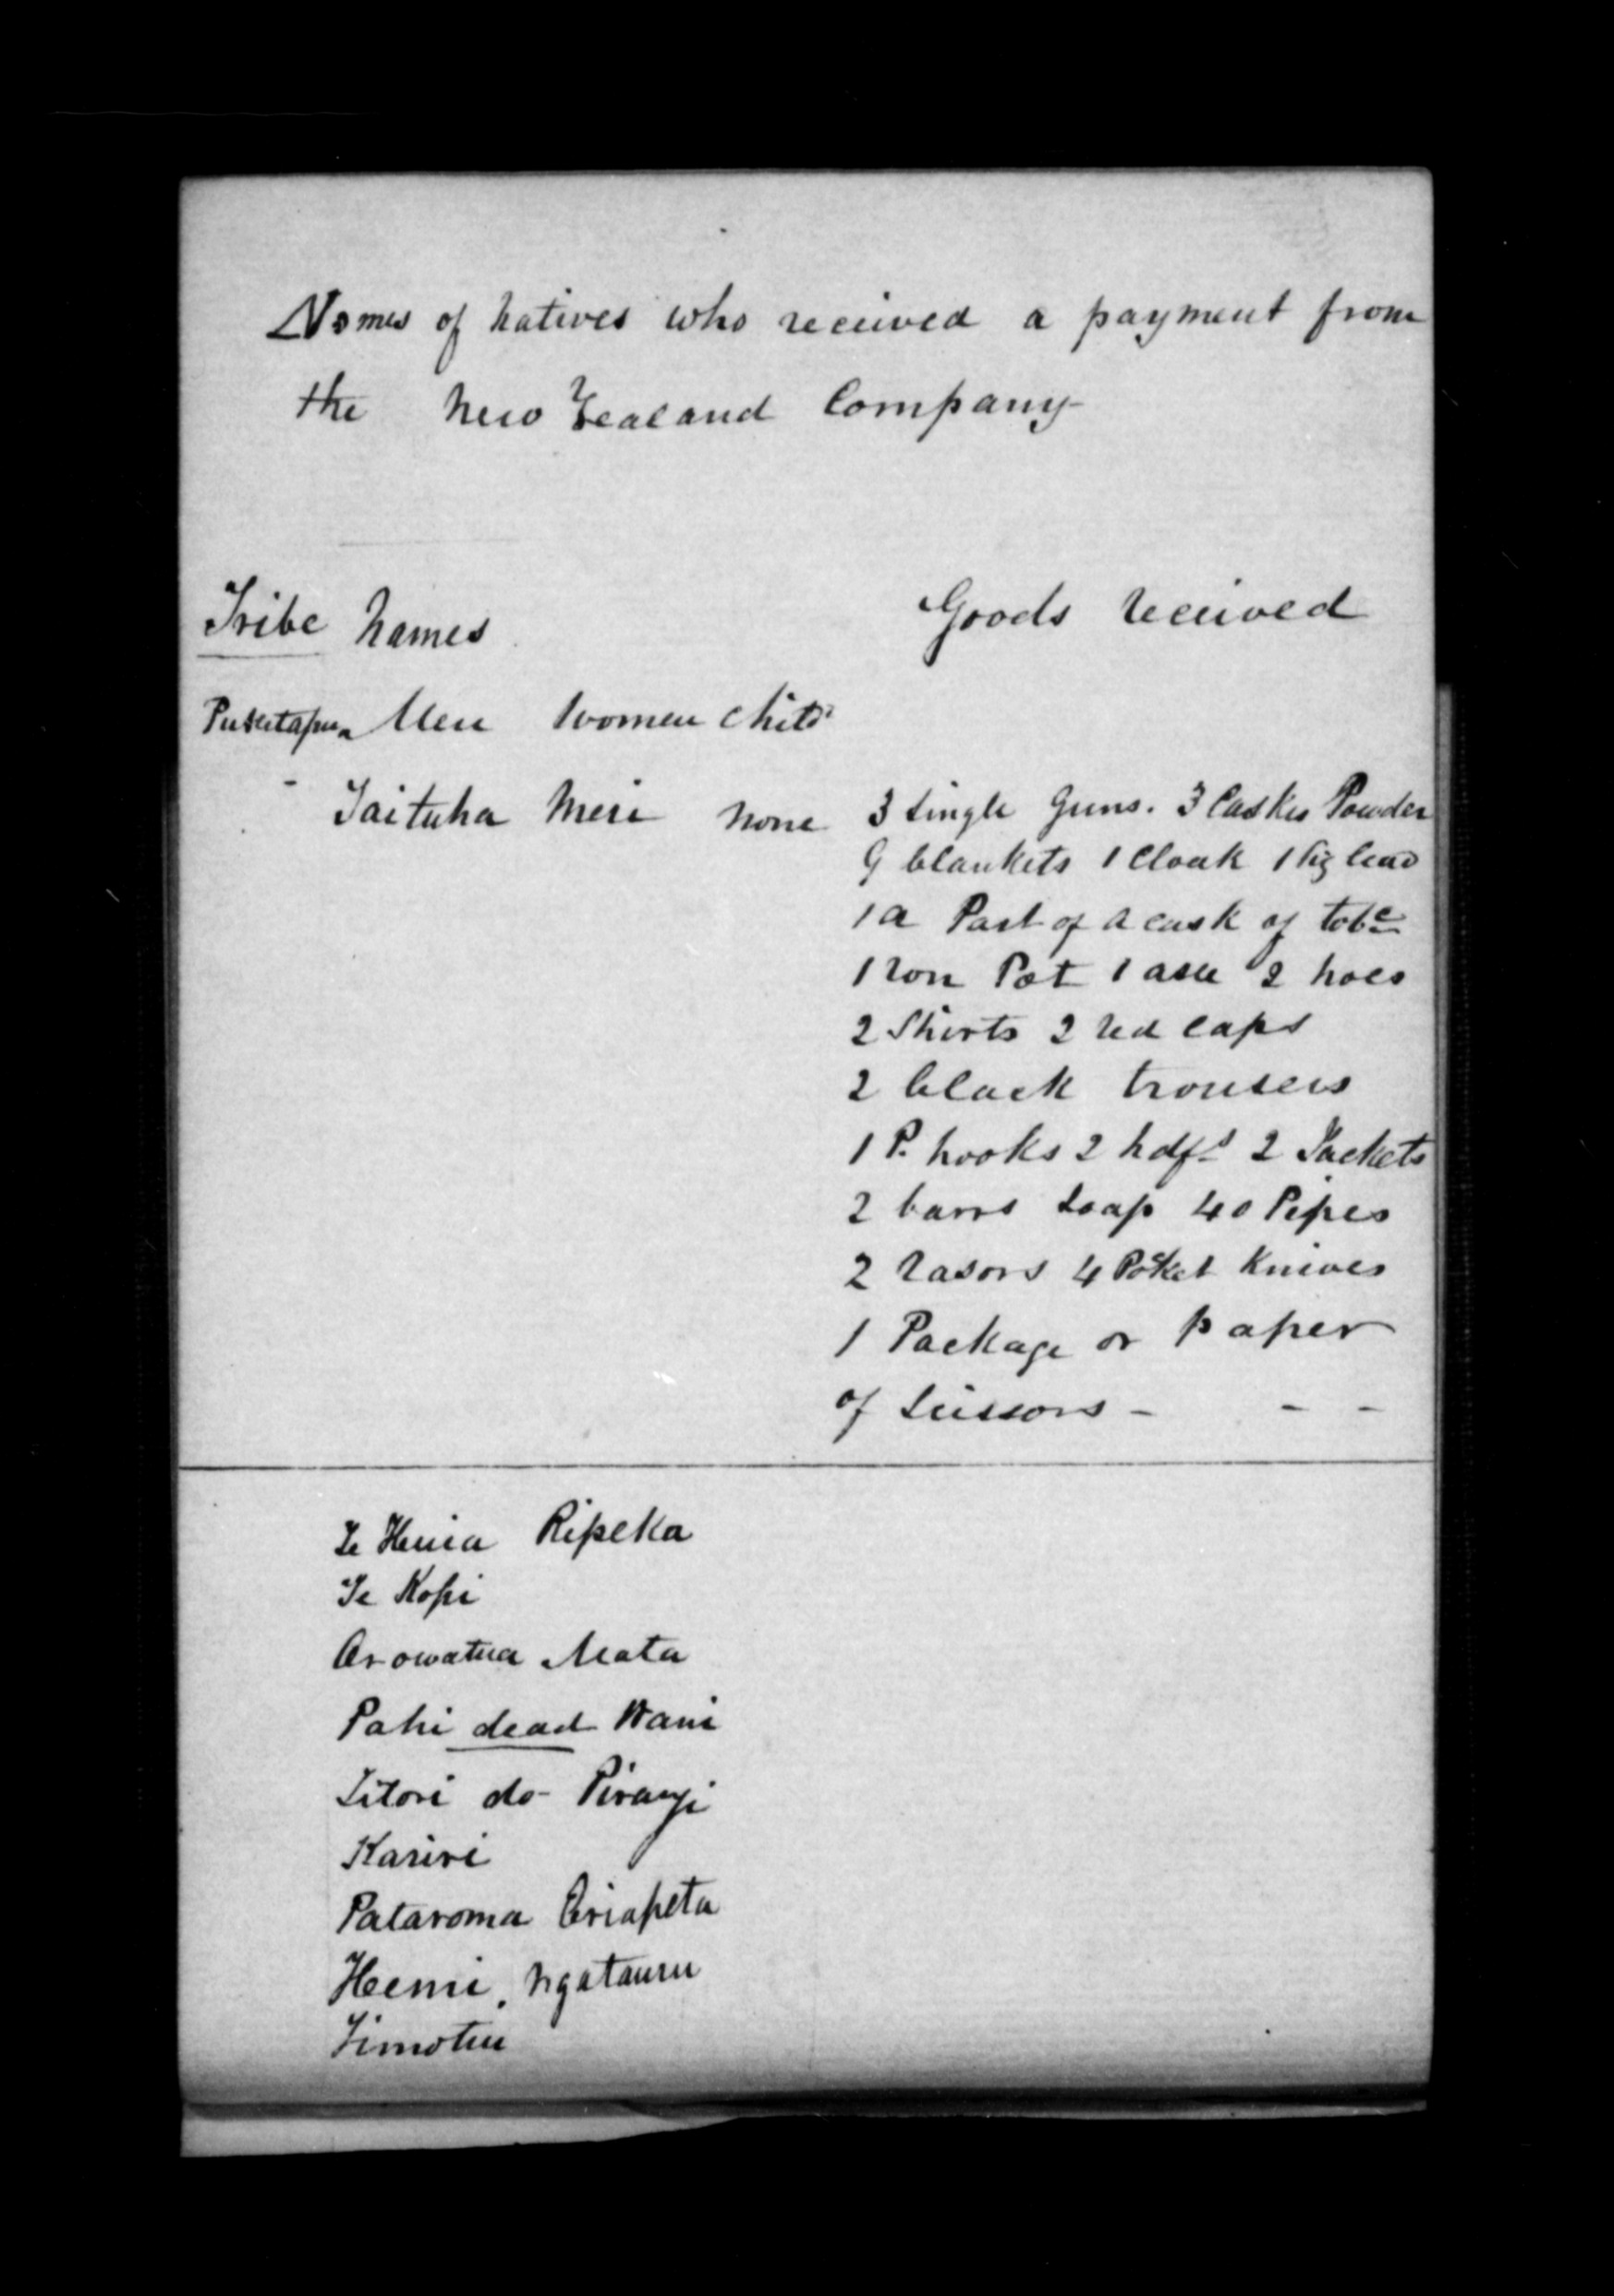 Names of Natives who received a payment from
the New Zealand Company
Tribe Names Goods received
Puketapu Men Women Child
Taituha Meri None 3 Single Guns. 3 Caskes Powder
9 blankets 1 Cloak 1 Pig lead
1 a Part of a cask of tobc
1 Iron Pot 1 axe 2 hoes
2 Shirts 2 red caps
2 black trousers
1 P. hooks 2 hdfs 2 Jackets
2 barrs Soap 40 Pipes
2 rasors 4 Pocket Knives
1 Package or paper
of Scissors - - -
Te Huia Ripeka
Te Kopi
Arowatua Mata
Pahi dead Wani
Titori do - Pirangi
Kariri
Pataroma Eriapeta
Heemi, Ngatauru
Timotiu